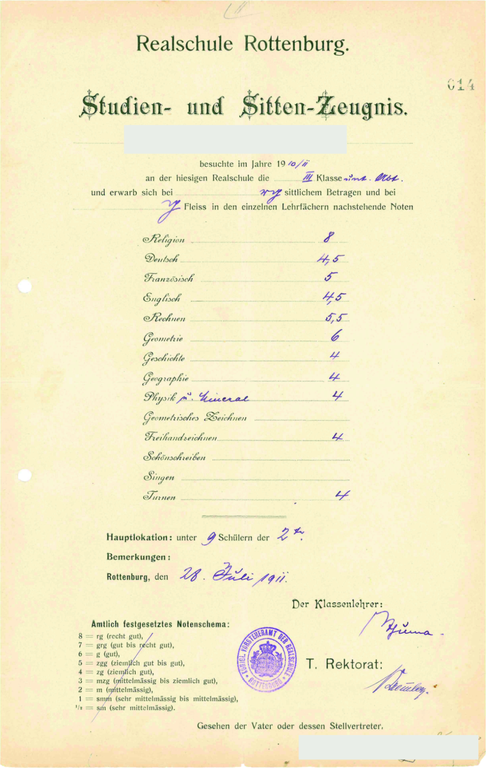 Realschule Rottenburg.
614
Studien- und Sitten-Zeugnis.
besuchte im Jahre 1910/11
an der hiesigen Realschule die III Klasse unt. Abt.
und erwarb sich bei rg sittlichem Betragen und bei
g Fleiss in den einzelnen Lehrfächern nachstehende Noten
Religion 8
Deutsch 4,5
Französisch 5
Englisch 4,5
Rechnen 5,5
Geometrie 6
Geschichte 4
Geographie 4
Physik u. Mineral 4
Geometrisches Zeichnen
Freihandzeichnen 4
Schönschreiben
Singen
Turnen 4
Hauptlokation: unter 9 Schülern der 2te.
Bemerkungen:
Rottenburg, den 28. Juli 1911.
Der Klassenlehrer:
Amtlich festgesetztes Notenschema:
8 = rg (recht gut),
7 = grg (gut bis recht gut),
6 = g (gut),
5 = zgg (ziemlich gut bis gut),
4 = zg (ziemlich gut),
3 = mzg (mittelmässig bis ziemlich gut),
2 = m (mittelmässig),
1 = smm (sehr mittelmässig bis mittelmässig),
½ = sm (sehr mittelmässig).
T. Rektorat:
KÖNIGL. VORSTEHERAMT DER REALSCHULE
ROTTENBURG
Gesehen der Vater oder dessen Stellvertreter.